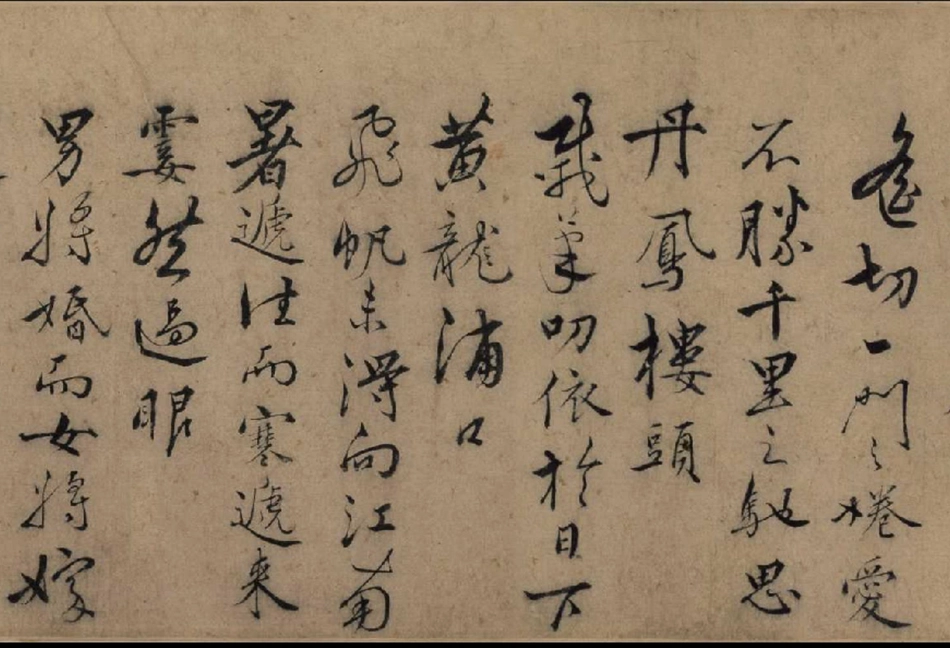 遙切一門之惓愛
不勝千里之馳思
丹鳳樓頭
載筆叨依於日下
黄龍浦口
飛帆未得向江南
暑遞往而寒遞来
霎然過眼
男將婚而女將嫁